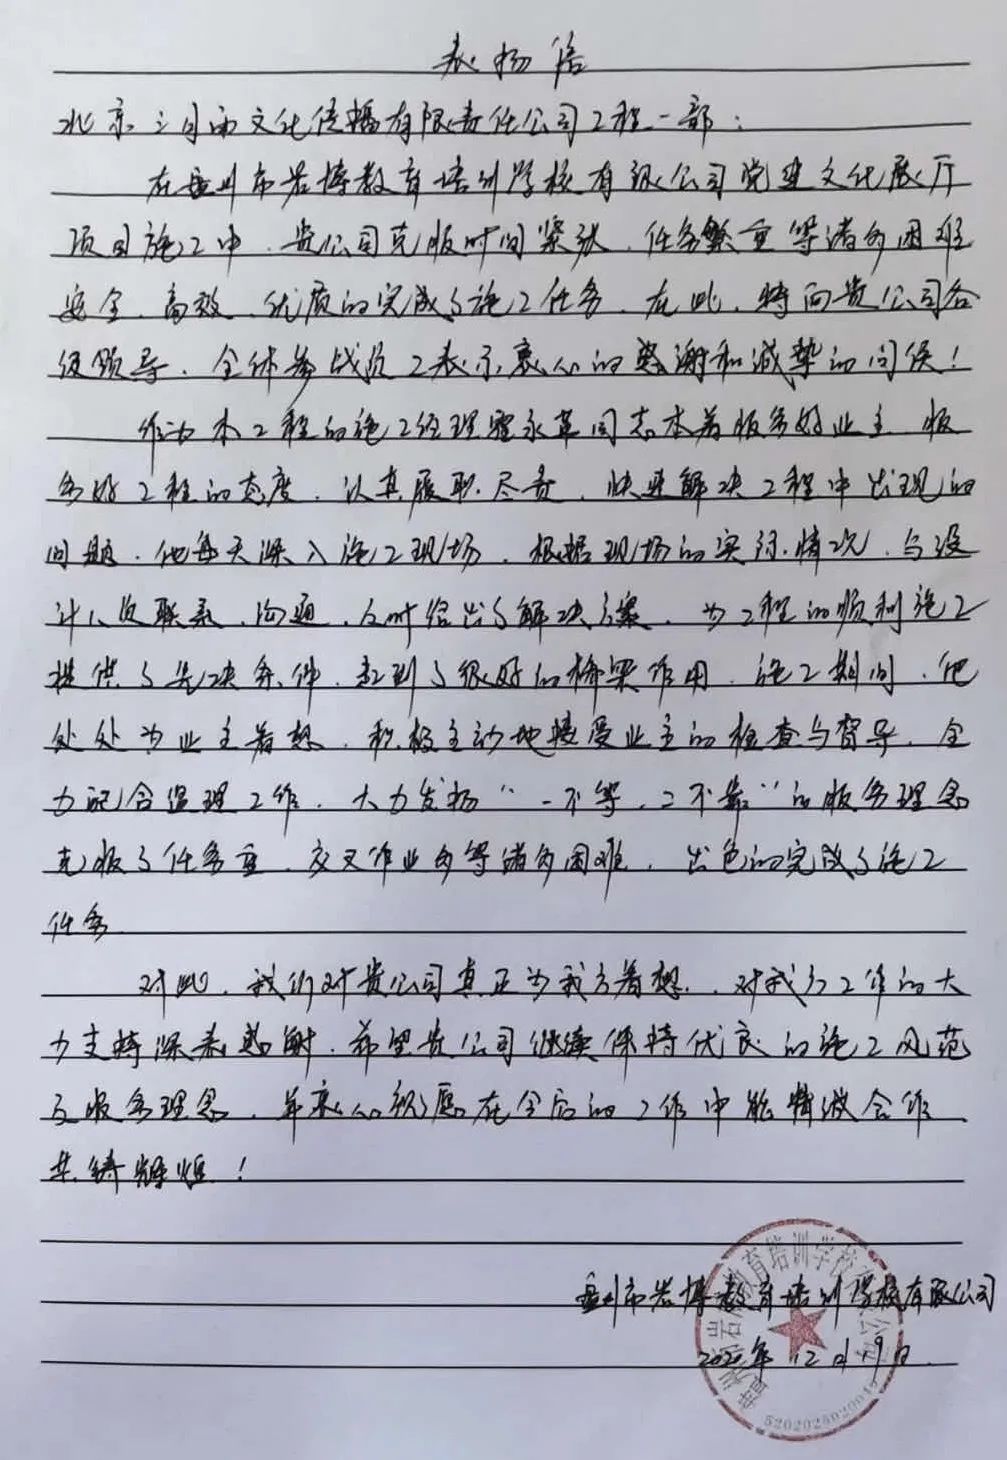 表扬信
北京三月雨文化传播有限责任公司工程一部：
在盘州市岩博教育培训学校有限公司党建文化展厅
项目施工中，贵公司克服时间紧张、任务繁重等诸多困难
安全、高效、优质的完成了施工任务，在此，特向贵公司各
级领导、全体参战员工表示衷心的感谢和诚挚的问候！
作为本工程的施工经理瞿永革同志本着服务好业主、服
务好工程的态度，认真履职尽责，快速解决工程中出现的
问题，他每天深入施工现场，根据现场的实际情况，与设
计人员联系、沟通，及时给出了解决方案，为工程的顺利施工
提供了先决条件，起到了很好的桥梁作用，施工期间，他
处处为业主着想，积极主动地接受业主的检查与督导，全
力配合监理工作，大力发扬“一不等，二不靠”的服务理念
克服了任务重、交叉作业多等诸多困难，出色的完成了施工
任务
对此，我们对贵公司真正为我方着想，对我方工作的大
力支持深表感谢，希望贵公司继续保持优良的施工风范
及服务理念，并衷心祝愿在今后的工作中能精诚合作
共铸辉煌！
盘州市岩博教育培训学校有限公司
2020年12月19日